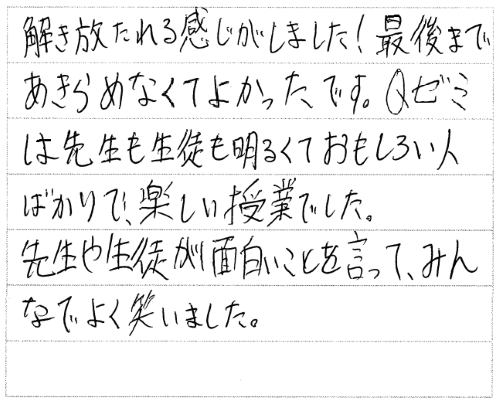 解き放たれる感じがしました！最後まで
あきらめなくてよかった、です。Qゼミ
は先生も生徒も明るくておもしろい人
ばかりで、楽しい授業でした。
先生や生徒が面白いことを言って、みん
なでよく笑いました。